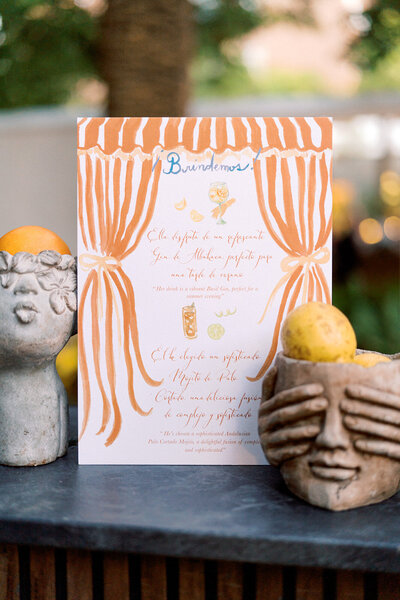 ¡Brindemos!
Ella disfruta de un refrescante
Gin de Albahaca perfecto para
una tarde de verano
"Her drink is a vibrant Basil Gin, perfect for a
summer evening"
Él ha elegido un sofisticado
Mojito de Palo
Cortado, una deliciosa fusión
de complejo y sofisticado
"He's chosen a sophisticated Andalusian
Palo Cortado Mojito, a delightful fusion of complex
and sophisticated"